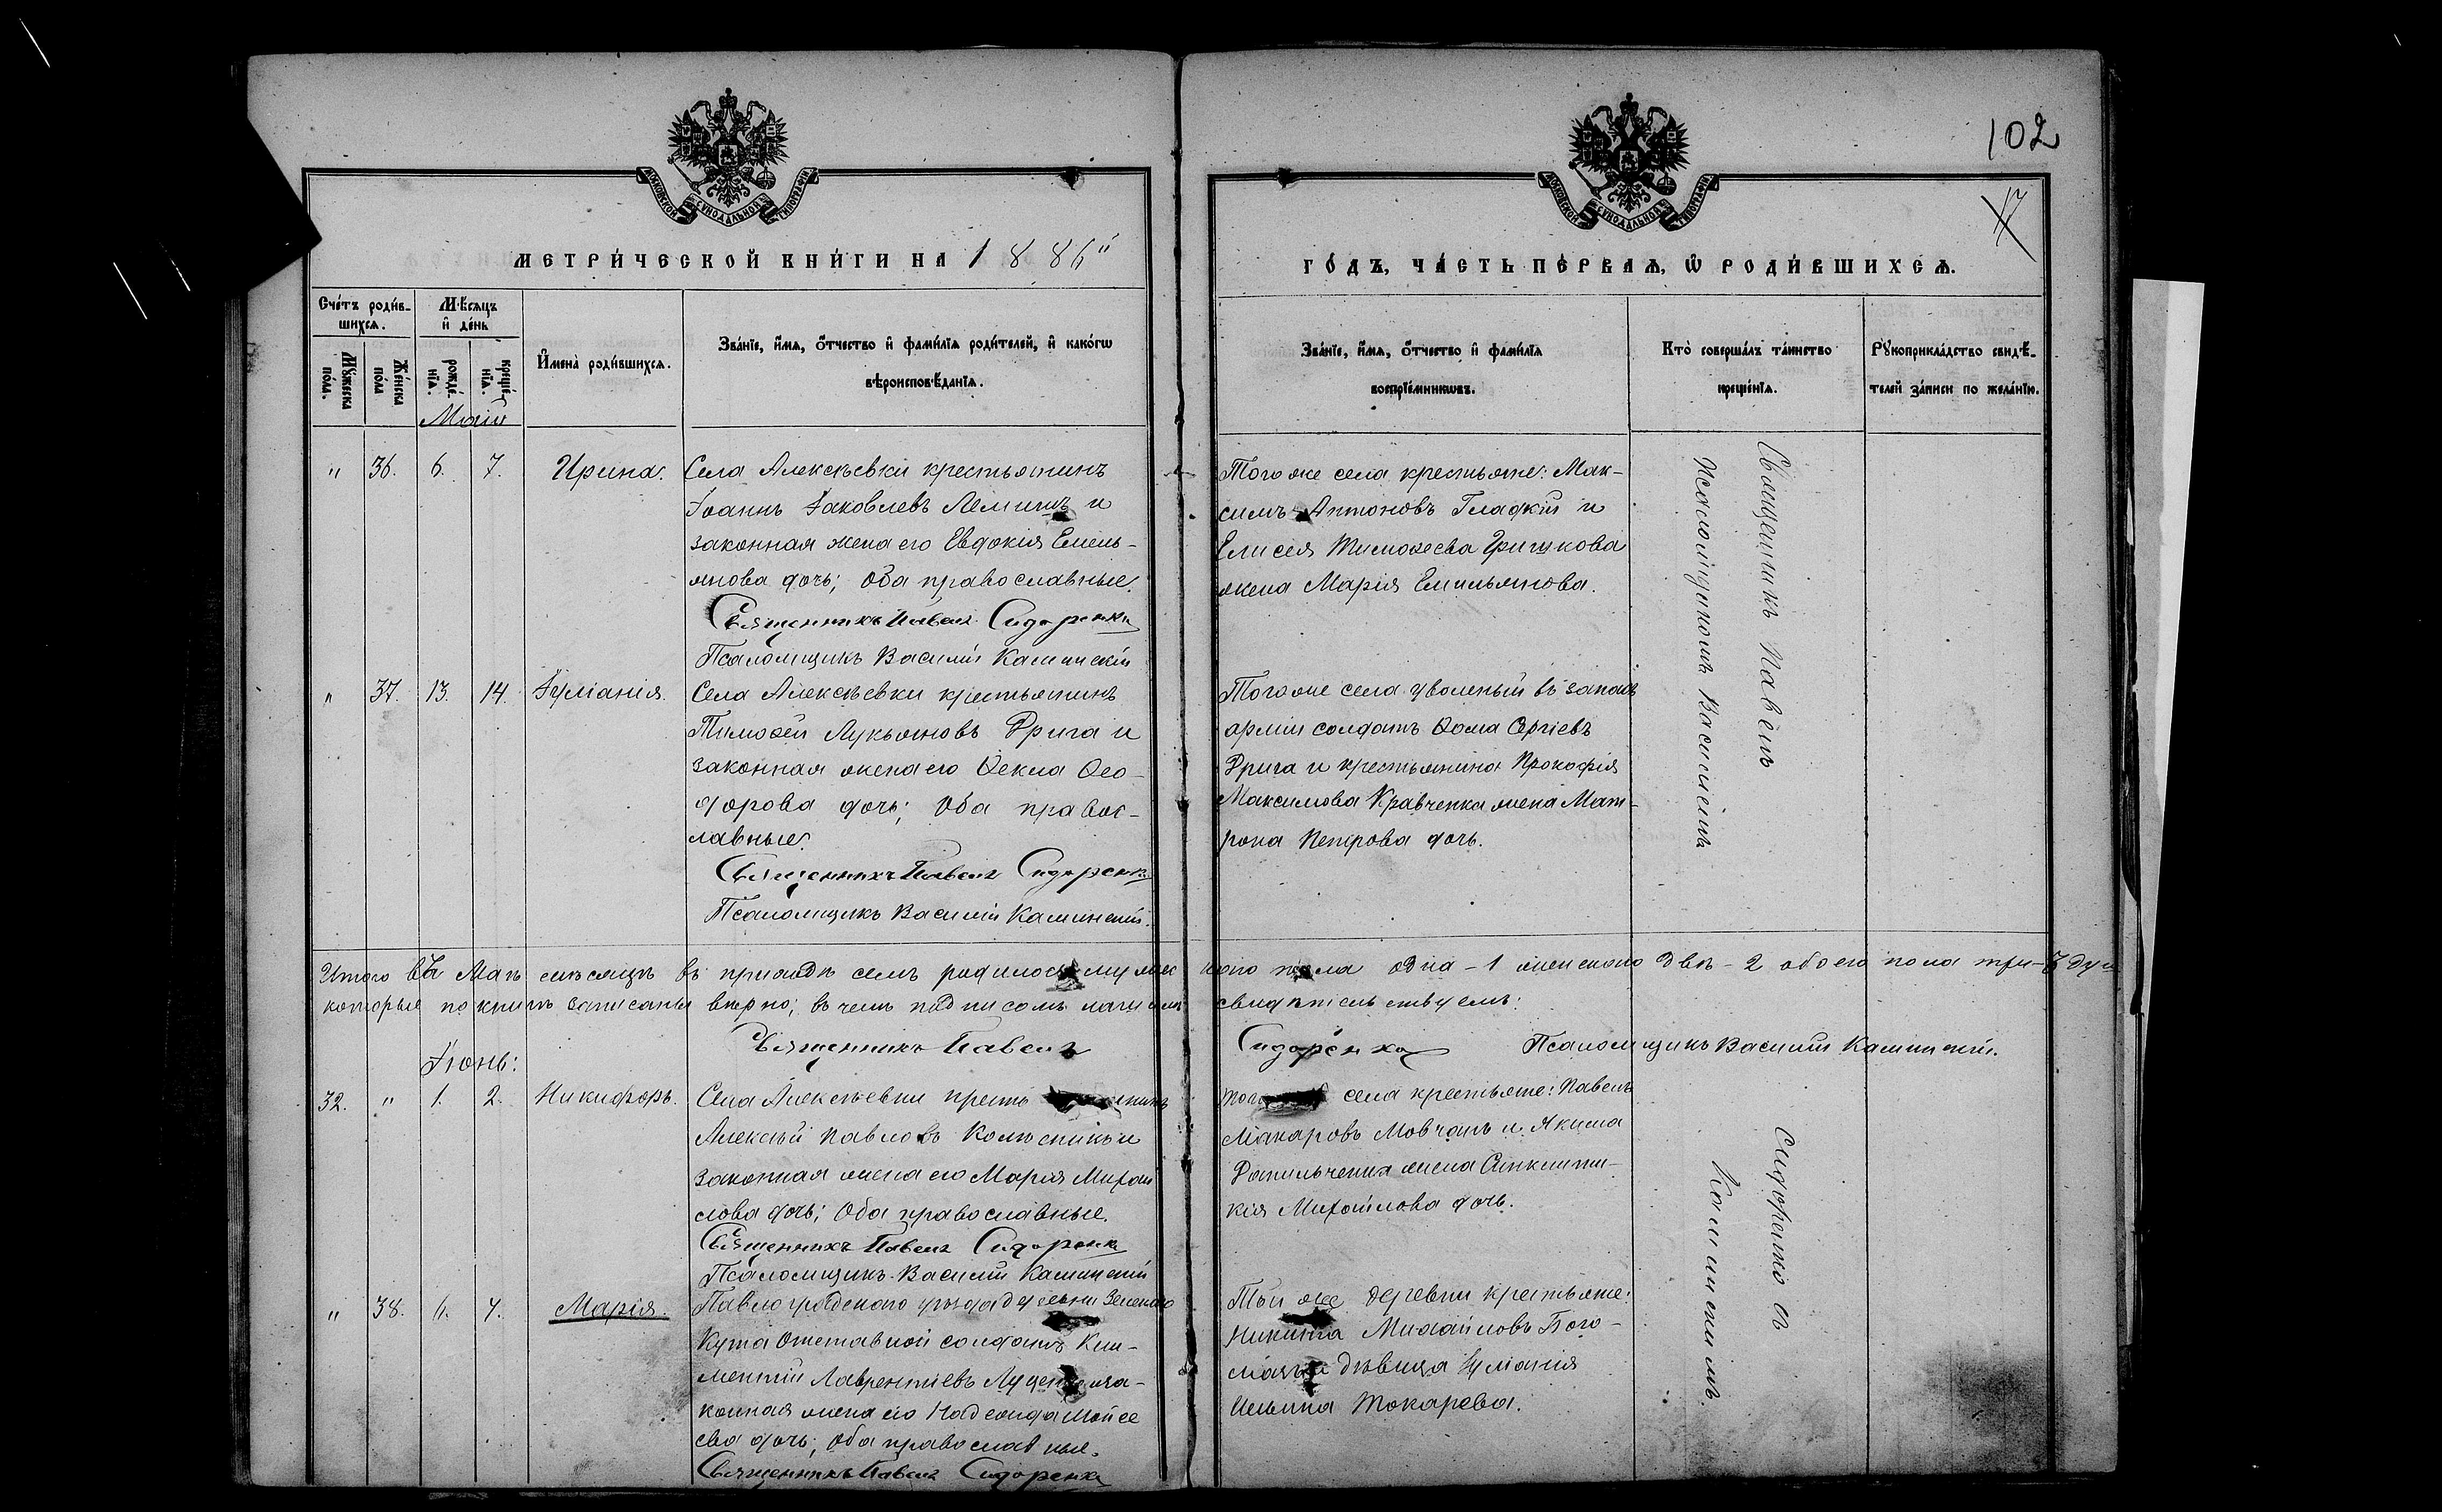 102
17
МОСКОВСКОЙ СУНОДАЛЬНОЙ ТИПОГРАФІИ
МОСКОВСКОЙ СУНОДАЛЬНОЙ ТИПОГРАФІИ
МЕТРИ́ЧЕСКОЙ КНИ́ГИ НА 1886й
ГО́ДЪ, ЧА́СТЬ ПЕ́РВАѦ, Ѡ҆ РОДИ́ВШИХСѦ.
Сче́тъ роди́в-
шихсѧ.
Мꙋ́жеска по́ла.
Же́нска по́ла
Мѣ́сѧцъ
и҆ де́нь
рожде́нїѧ.
креще́нїѧ.
Май
И҆мена̀ роди́вшихсѧ.
Зва́нїе, и҆́мѧ, ѻ҆́тчество и҆ фами́лїѧ роди́телей, и҆ како́гѡ
вѣроисповѣ́данїѧ.
Зва́нїе, и҆́мѧ, ѻ҆́тчество и҆ фами́лїѧ
воспрїе́мникѡвъ.
Кто̀ соверша́лъ та́инство
креще́нїѧ.
Рꙋкоприкла́дство свидѣ́-
телей за́писи по жела́нїю.
" 36. 6. 7. Ирина.
Села Алексѣевки крестьянинъ
Іоаннъ Іаковлевъ Лемишъ и
законная жена его Евдокія Емель-
янова дочь; Оба православные.
Священникъ Павелъ Сидоренко
Псаломщикъ Василій Калинскій
Того же села крестьяне: Мак-
симъ Антоновъ Гладкій и
Елисея Тимоѳеева Гришкова
жена Марія Емильянова.
Священникъ Павелъ
Псаломщикомъ Василіемъ
" 37. 13. 14. Іуліанія.
Села Алексѣевки крестьянинъ
Тимоѳей Лукьяновъ Дрига и
законная жена его Ѳекла Ѳео-
дорова дочь; Оба правос-
лавные.
Священникъ Павелъ Сидоренко
Псаломщикъ Василій Калинскій.
Того же села уволеный въ запасъ
арміи солдатъ Ѳома Сергіевъ
Дрига и крестьянина Прокофія
Максимова Кравченка жена Мат-
рона Петрова дочь.
Итого въ Маѣ мѣсяцѣ въ приходѣ семъ родилось мужескаго пола одна - 1 женскаго двѣ - 2 обоего пола три - 3 душ
которые по книгѣ записаны вѣрно; въ чемъ подписомъ нашимъ свидѣтельствуемъ:
Священникъ Павелъ Сидоренко Псаломщикъ Василій Калинскій.
Іюнь:
32. " 1. 2. Никифоръ.
Села Алексѣевки кресть
Алексѣй Павловъ Колѣсникъ и
законная жена его Марія Михай
лова дочь; Оба православные.
Священникъ Павелъ Сидоренко
Псаломщикъ Василій Калинскій
села крестьяне: Павелъ
Макаровъ Мовчанъ и Якима
Данильченка жена
Михайлова дочь.
Сидоренко съ
Калинскимъ.
" 38. 4. Марія.
Павлоградскаго уѣзда деревни Зеленаго
Кута Отставной солдатъ Кли-
ментій Лаврентіевъ за-
конная жена его Надежда Мойсе
ева дочь; Оба православные.
Священникъ Павелъ Сидоренко
Той же деревни крестьяне:
Никита Михайловъ Бого-
дѣвица Іуліанія
Ильина Токарева.